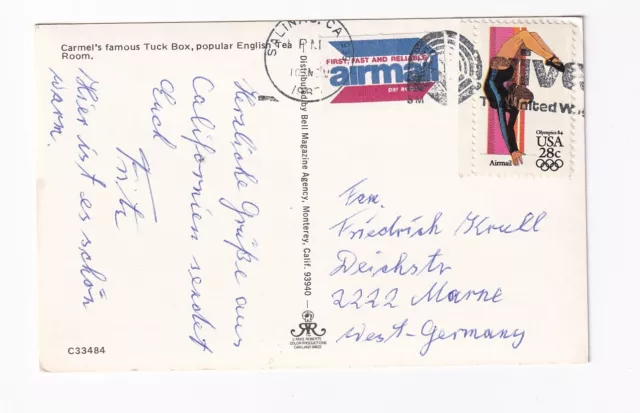 Carmel's famous Tuck Box, popular English Tea
Room.
Herzliche Grüße aus
Californien sendet
Euch
Fritz
Hier ist es schön
warm.
C33484
Distributed by Bell Magazine Agency, Monterey, Calif. 93940
SALINAS, CA
PM
FIRST, FAST AND RELIABLE
airmail
par av
United Way
Olympics 84
USA
28c
Airmail
Fam.
Friedrich Krull
Deichstr
2222 Marne
West-Germany